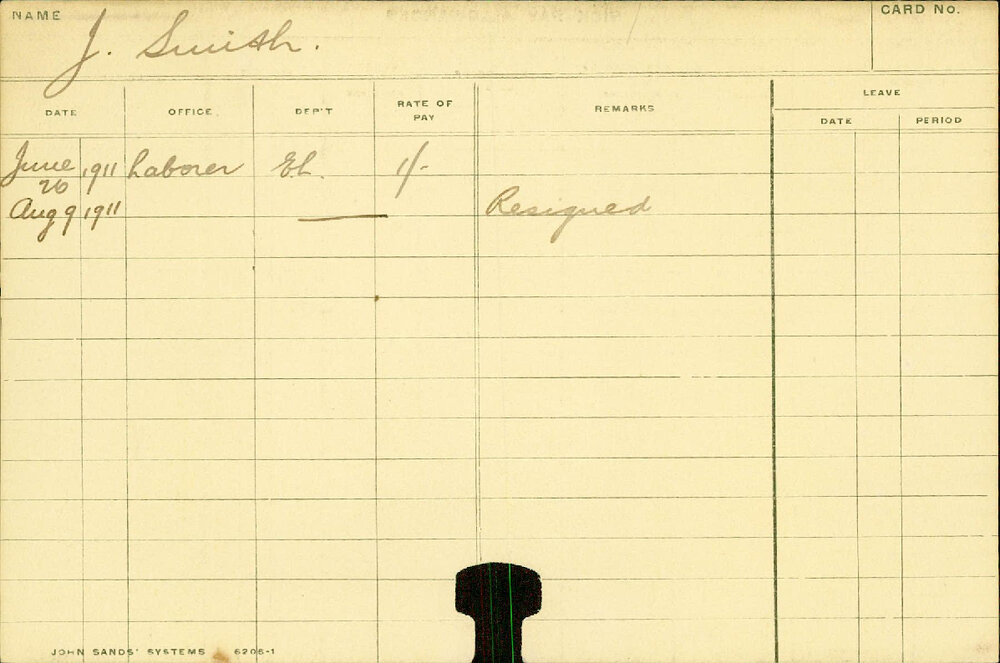 NAME J. Smith. CARD No.
DATE OFFICE DEP'T RATE OF PAY REMARKS LEAVE
DATE PERIOD
June 26 1911 Laborer El. 1/-
Aug 9 1911 Resigned
JOHN SANDS' SYSTEMS 6206-1